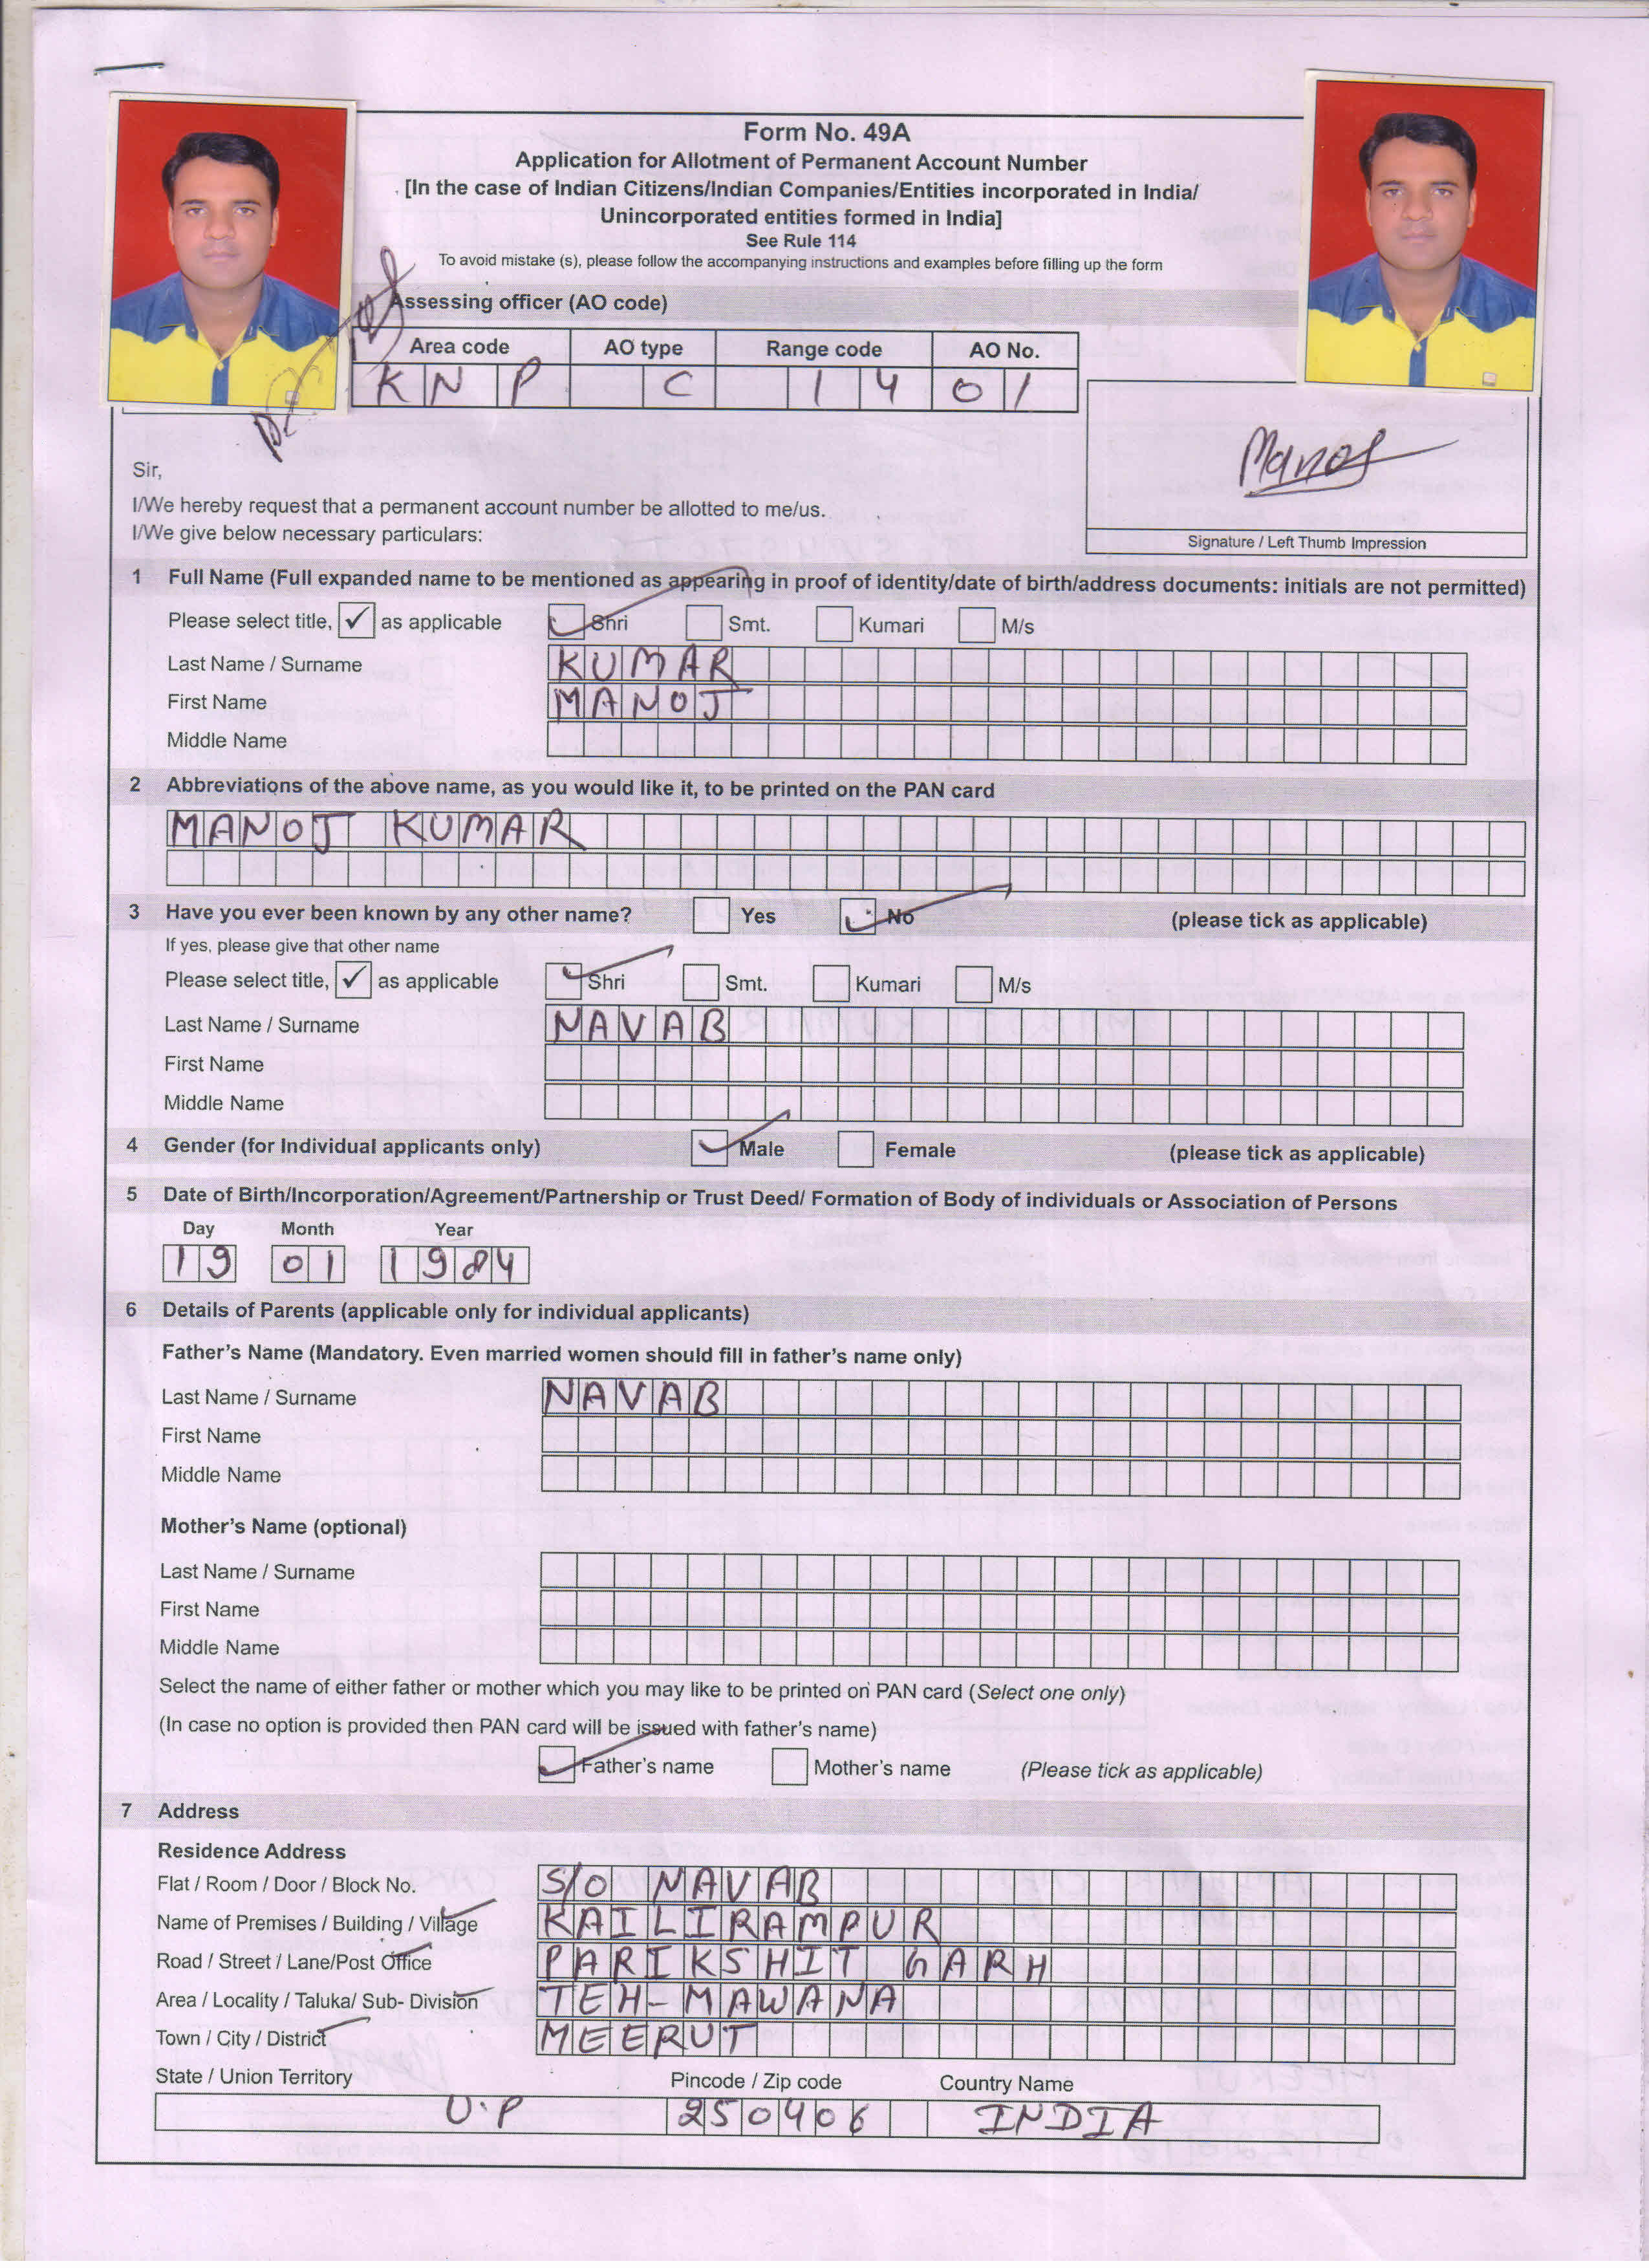 Form No. 49A
Application for Allotment of Permanent Account Number
[In the case of Indian Citizens/Indian Companies/Entities incorporated in India/
Unincorporated entities formed in India]
See Rule 114
To avoid mistake (s), please follow the accompanying instructions and examples before filling up the form
Assessing officer (AO code)
Area code AO type Range code AO No.
KNP C 14 01
Manoj
Sir,
I/We hereby request that a permanent account number be allotted to me/us.
I/We give below necessary particulars:
Signature / Left Thumb Impression
1 Full Name (Full expanded name to be mentioned as appearing in proof of identity/date of birth/address documents: initials are not permitted)
Please select title, ✓ as applicable ✓ Shri Smt. Kumari M/s
Last Name / Surname KUMAR
First Name MANOJ
Middle Name
2 Abbreviations of the above name, as you would like it, to be printed on the PAN card
MANOJ KUMAR
3 Have you ever been known by any other name? Yes ✓ No (please tick as applicable)
If yes, please give that other name
Please select title, ✓ as applicable ✓ Shri Smt. Kumari M/s
Last Name / Surname NAVAB
First Name
Middle Name
4 Gender (for Individual applicants only) ✓ Male Female (please tick as applicable)
5 Date of Birth/Incorporation/Agreement/Partnership or Trust Deed/ Formation of Body of individuals or Association of Persons
Day Month Year
19 01 1984
6 Details of Parents (applicable only for individual applicants)
Father's Name (Mandatory. Even married women should fill in father's name only)
Last Name / Surname NAVAB
First Name
Middle Name
Mother's Name (optional)
Last Name / Surname
First Name
Middle Name
Select the name of either father or mother which you may like to be printed on PAN card (Select one only)
(In case no option is provided then PAN card will be issued with father's name)
✓ Father's name Mother's name (Please tick as applicable)
7 Address
Residence Address
Flat / Room / Door / Block No. S/O NAVAB
Name of Premises / Building / Village KAILIRAMPUR
Road / Street / Lane/Post Office PARIKSHIT GARH
Area / Locality / Taluka/ Sub- Division TEH-MAWANA
Town / City / District MEERUT
State / Union Territory Pincode / Zip code Country Name
U.P 250406 INDIA